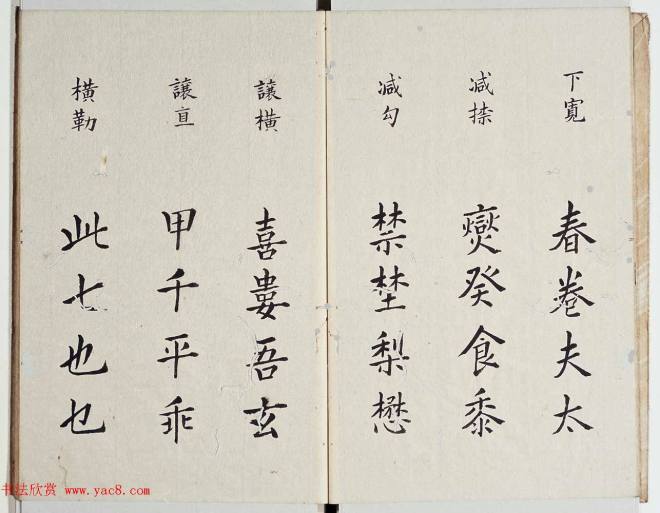 下寬 春卷夫太
減捺 燮癸食黍
減勾 禁埜梨懋
讓橫 喜婁吾玄
讓直 甲千平乖
橫勒 此七也乜
书法欣赏 www.yac8.com